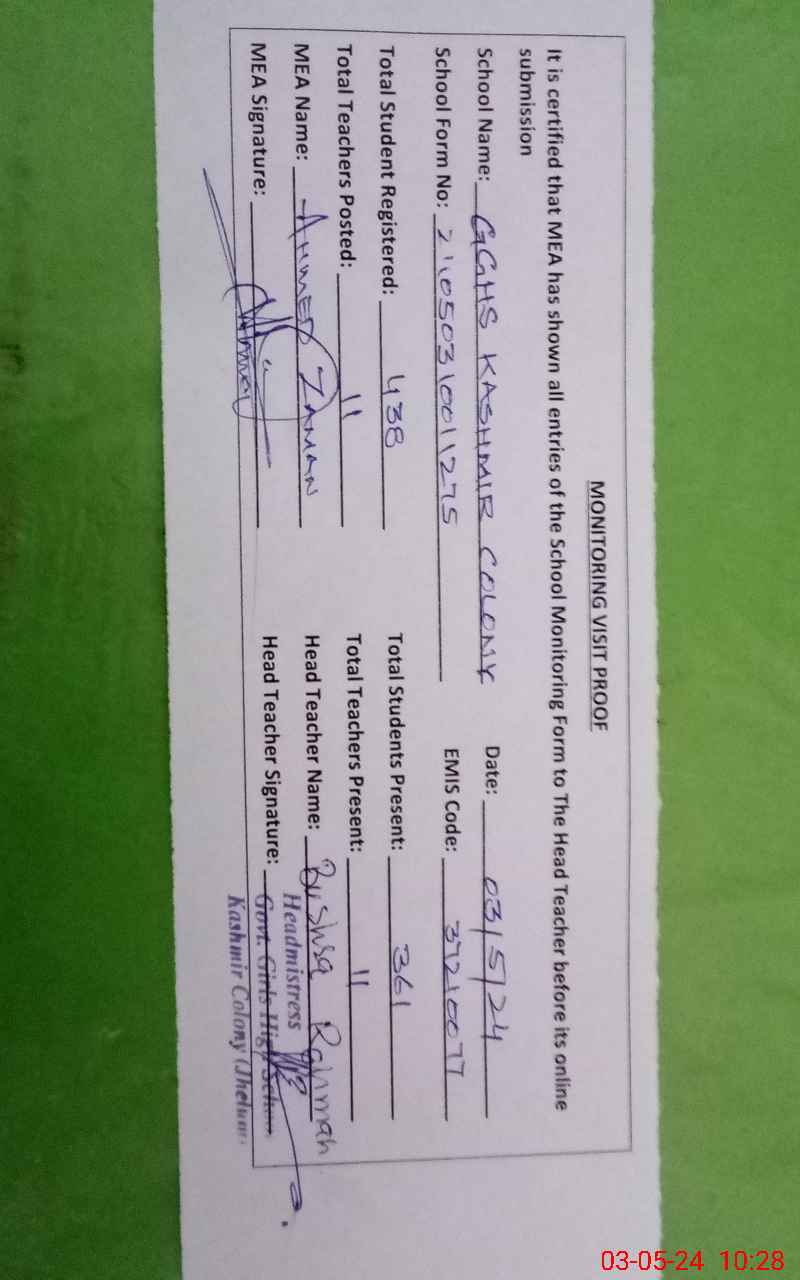 MONITORING VISIT PROOF
It is certified that MEA has shown all entries of the School Monitoring Form to The Head Teacher before its online
submission
School Name: GGHS KASHMIR COLONY Date: 03/5/24
School Form No: 21050310011275 EMIS Code: 37210077
Total Student Registered: 438 Total Students Present: 361
Total Teachers Posted: 11 Total Teachers Present: 11
MEA Name: AHMED ZAMAN Head Teacher Name: Bushra Rahman
MEA Signature: Head Teacher Signature:
Headmistress
Govt. Girls High
Kashmir Colony (Jhelum)
03-05-24 10:28